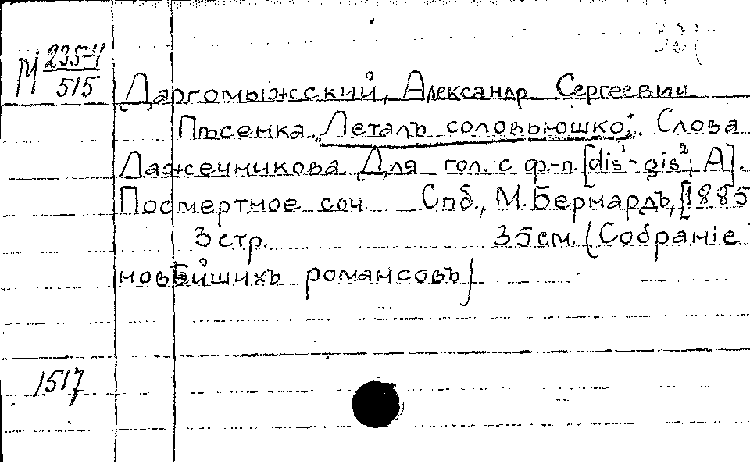 М 235-4
515
Даргомыжский, Александр Сергеевич
Пѣсенка "Леталъ соловьюшко". Слова
Лажечникова Для гол. с ф-п. [dis¹-gis², A].
Посмертное соч Спб., М. Бернардъ, [1885
3 стр. 35 см. (Собраніе
новѣйшихъ романсовъ)
1517